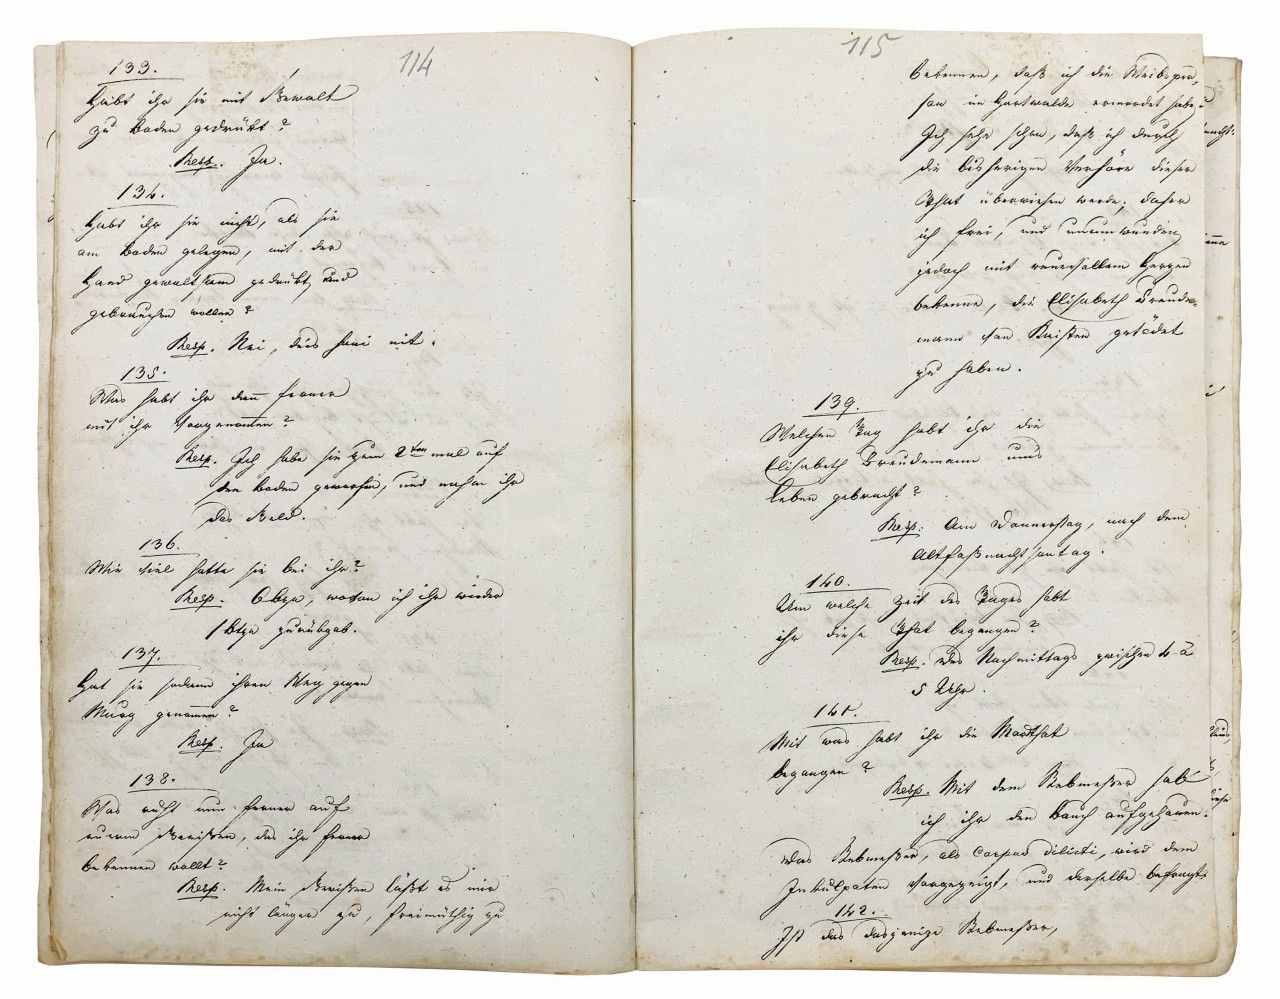 114
133.
Habt ihr sie mit Gewalt
zu Boden gedrükt?
Resp. Ja.
134.
Habt ihr sie nicht, als sie
am Boden gelegen, mit der
Hand gewaltsam gedrükt, und
gebrauchen wollen?
Resp. Nei, deis hani nit.
135.
Was habt ihr dann ferner
mit ihr Vorgenomen?
Resp. Ich habe sie zum 2ten mal auf
den Boden geworfen, und nahm ihr
das Geld.
136.
Wie viel hatte sie bei ihr?
Resp. 6 btze, wovon ich ihr wieder
1 btze zurükgab.
137.
Hat sie sodann ihren Weg gegen
Murg genomen?
Resp. Ja
138.
Was ruht nun ferner auf
eurem Gewißen, das ihr ferner
bekennen wollt?
Resp. Mein Gewißen läßt es mir
nicht länger zu, freimüthig zu
115
bekennen, daß ich die Weibsper,
son im Hartwalde ermordet habe.
Ich sehe schon, daß ich durch
die bisherigen Verhöre dieser
That überwiesen werde; daher
ich frei, und unumwunden
jedoch mit reuevollem Herzen
bekenne, die Elisabeth Freude
mann von Kaisten getödet
zu haben.
139.
Welchen Tag habt ihr die
Elisabeth Freudemann ums
Leben gebracht?
Resp: Am Donnerstag, nach dem
Altfaßnachtsontag.
140.
Um welche Zeit des Tages habt
ihr diese That begangen?
Resp. Des Nachmittags zwischen 4 a
5 Uhr.
141.
Mit was habt ihr die Mordthat
begangen?
Resp. Mit dem Rebmeßer hab
ich ihr den Bauch aufgehauen.
Das Rebmeßer, als Corpus dilicti, wird dem
Inkulpaten Vorgezeigt, und derselbe befragt:
142.
Ist das dasjenige Rebmeßer,